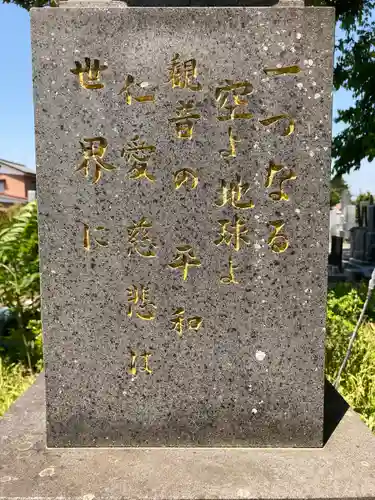 一つなる
空よ地球よ
観音の平和
仁愛慈悲は
世界に